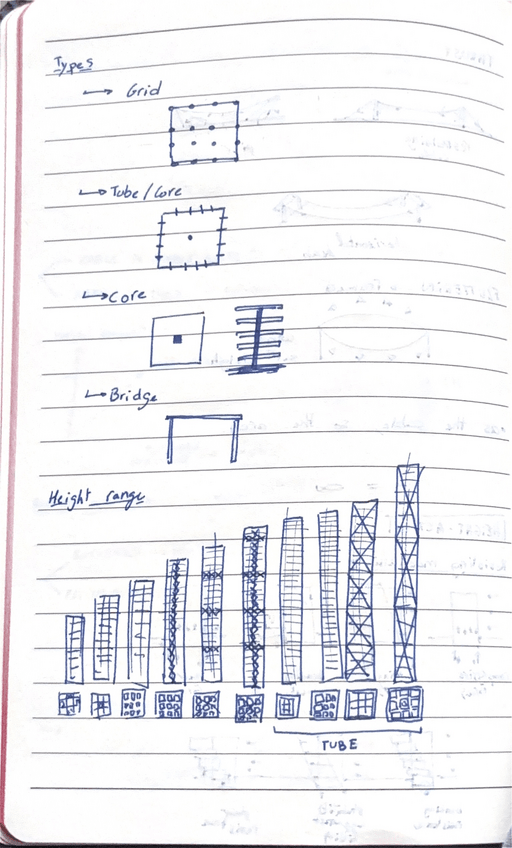 Types
→ Grid
→ Tube/Core
→ Core
→ Bridge
Height range
TUBE